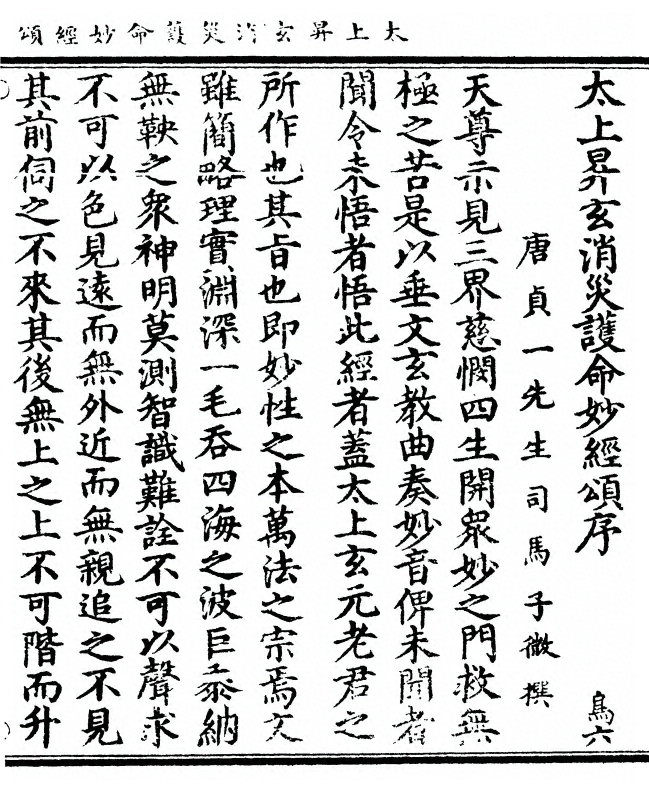 太上昇玄消災護命妙經頌
太上昇玄消災護命妙經頌序
鳥六
唐貞一先生司馬子微撰
天尊示見三界慈憫四生開衆妙之門救無
極之苦是以垂文玄教曲奏妙音俾未聞者
聞令未悟者悟此經者蓋太上玄元老君之
所作也其旨也即妙性之本萬法之宗焉文
雖簡略理實淵深一毛吞四海之波巨黍納
無鞅之衆神明莫測智識難詮不可以聲求
不可以色見遠而無外近而無親追之不見
其前伺之不來其後無上之上不可階而升